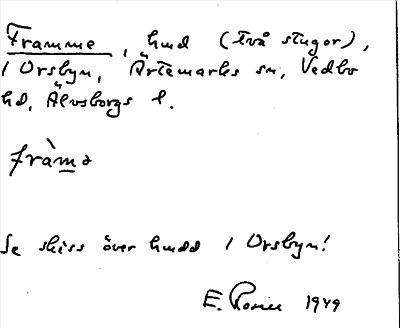 Framme, hmd (två stugor),
i Orsbyn, Ärtemarks sn, Vedbo
hd, Älvsborgs l.
fràmə
Se skiss över hmdd i Orsbyn!
E. Rosen 1949